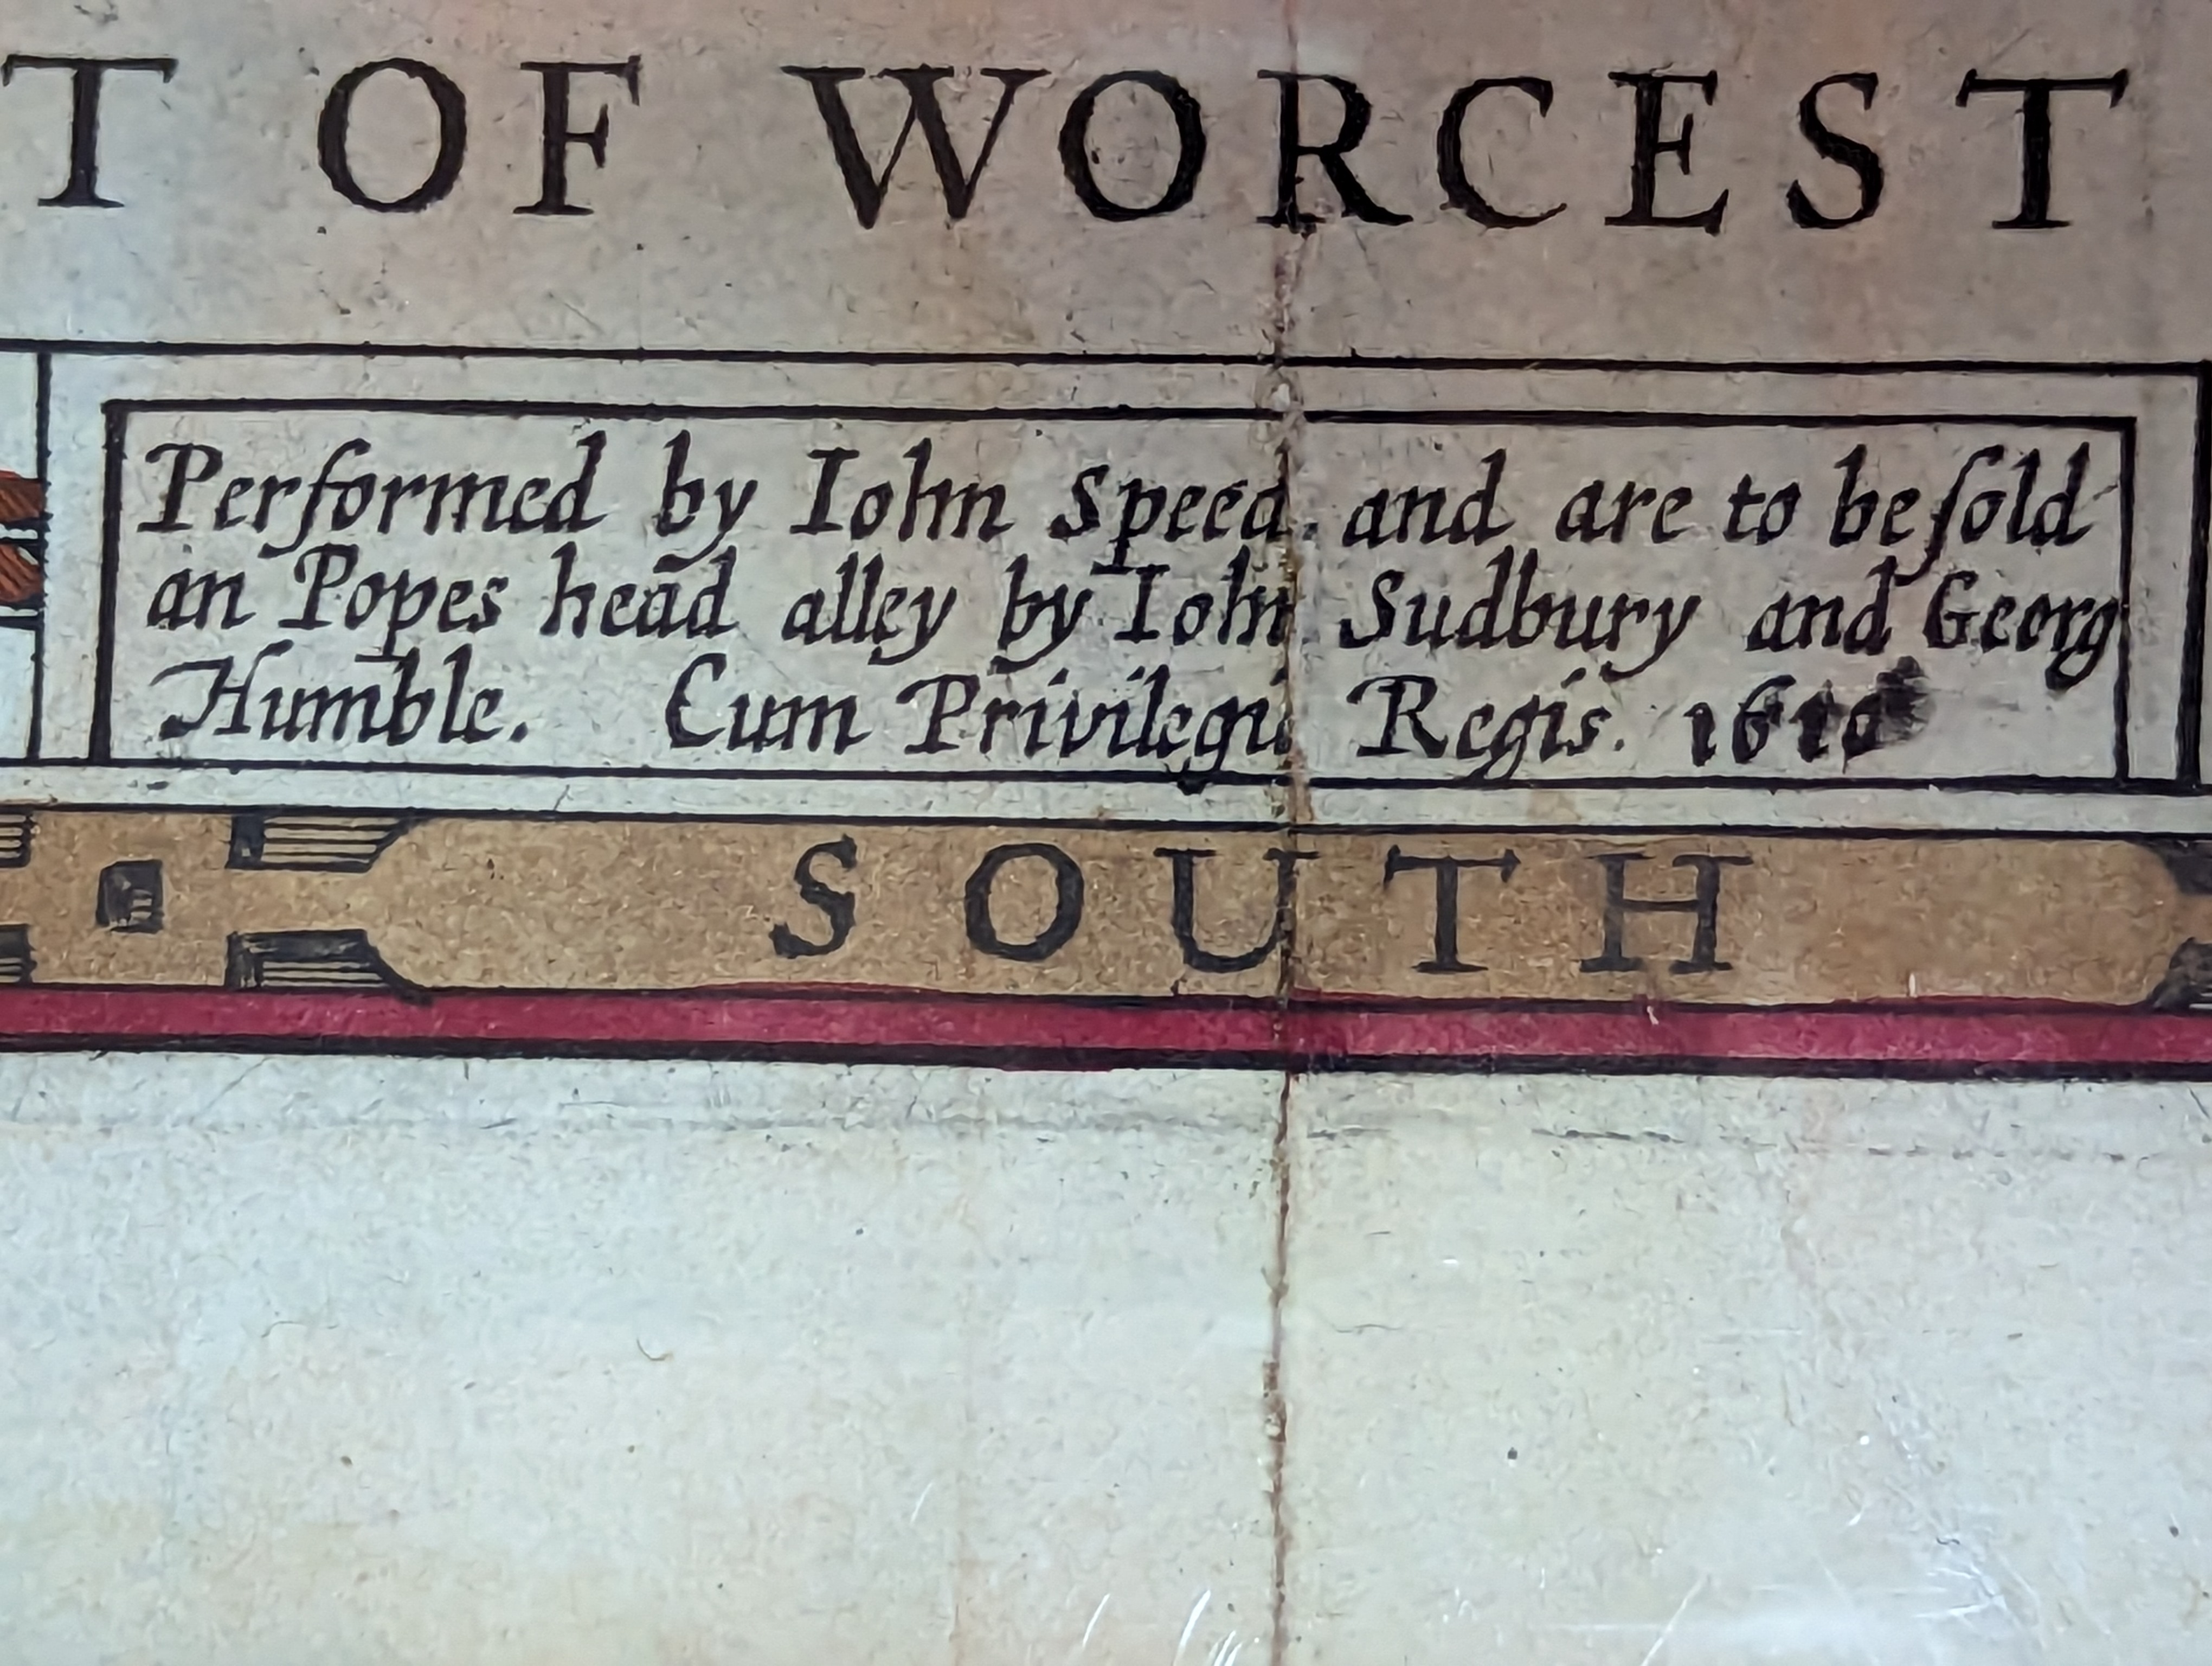 T OF WORCEST
Performed by Iohn Speed. and are to be ſold
an Popes head alley by Iohn Sudbury and Georg
Humble. Cum Privilegi Regis. 1610
SOUTH